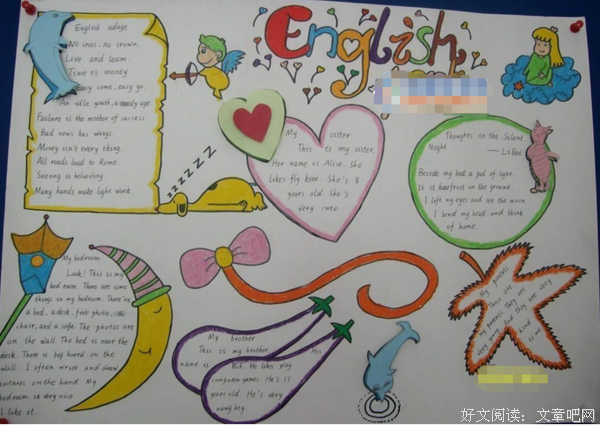 English
English adage
No cross, no crown.
Live and learn.
Time is money.
Easy come, easy go.
An idle youth, a needy age.
Failure is the mother of success.
Bad news has wings.
Money isn't every thing.
All roads lead to Rome.
Seeing is believing.
Many hands make light work.
zzzzzz
My sister
This is my sister.
Her name is Alise. She
likes fly keer. She's 8
years old. She's
very cute.
Thoughts in the Silent
Night
——Li Bai
Beside my bed a pool of light.
Is it hoarfrost on the ground.
I lift my eyes and see the moon
I bend my head and think
of home.
My bedroom
Look! This is my
bed room. There are some
things in my bedroom. There're
a bed, a desk, photos,
chair, and a sofa. The photos are
on the wall. The bed is near the
desk. There is big board on the
wall. I often write and draw
pictures on the board. My
bedroom is very nice.
I like it.
My brother
This is my brother. His
name is Bob. He likes play
computer games. He's 11
years old. He's very
naughty.
My parents
These are
my parents. They are
very young. And they are very
kind
to me.
好文阅读：文章吧网